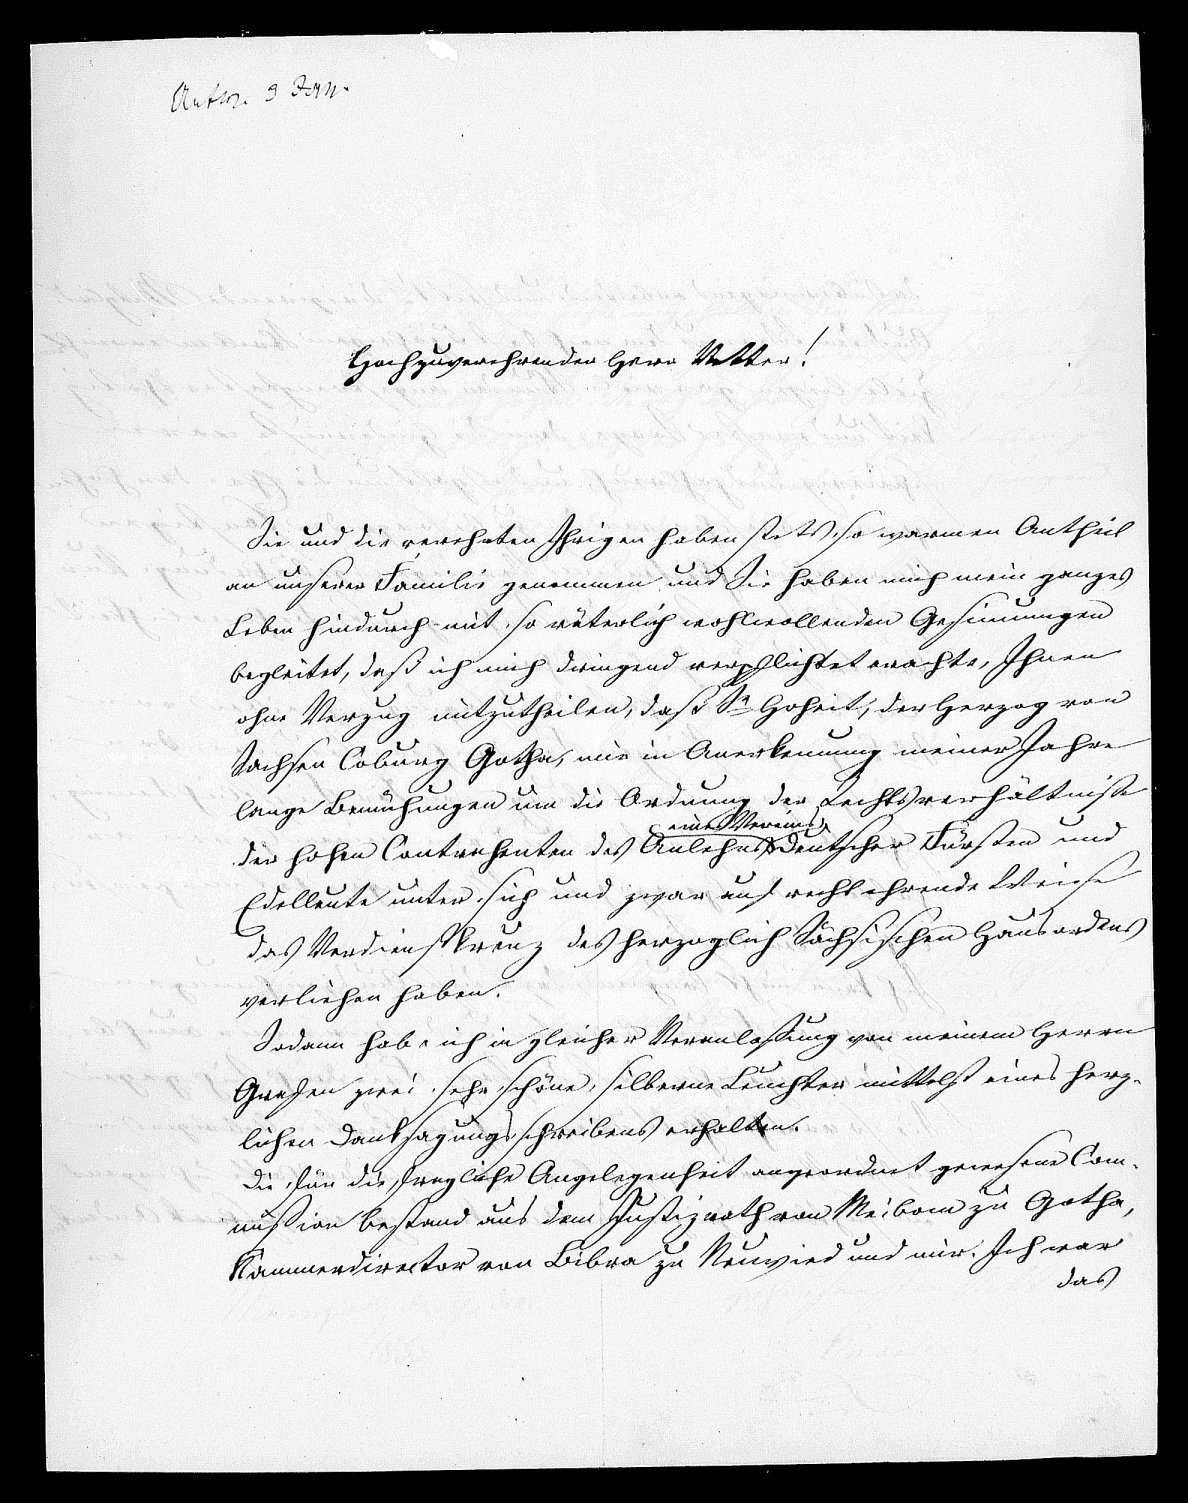 Antw. 9 Jan.
Hochzuverehrender Herr Vetter!
Sie und die verehrten Ihrigen haben stets so warmen Antheil
an unserer Familie genommen und Sie haben mich mein ganzes
Leben hindurch mit so väterlich wohlwollenden Gesinnungen
begleitet, daß ich mich dringend verpflichtet erachte, Ihnen
ohne Verzug mitzutheilen, daß Sr Hoheit, der Herzog von
Sachsen Coburg Gotha, mir in Anerkennung meiner Jahre
lange Bemühungen um die Ordnung der Rechtsverhältniße
der hohen Contrahenten des Anlehns eines Vereins deutscher Fürsten und
Edelleute unter sich und zwar auf recht ehrende Weise
das Verdienstkreuz des herzoglich Sächsischen Hausordens
verliehen haben.
Sodann habe ich in gleicher Veranlaßung von meinem Herrn
Grafen zwei sehr schöne, silberne Leuchter mittelst eines herz-
lichen Danksagungsschreibens erhalten.
Die für die fragliche Angelegenheit angeordnet gewesene Com-
mission bestand aus dem Justizrath von Meibom zu Gotha,
Kammerdirector von Bibra zu Neuwied und mir. Ich war
das